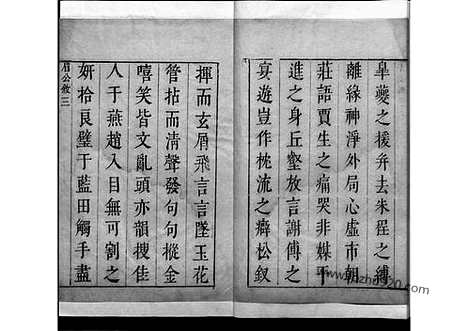 皐夔之援弁去朱程之縛
離緣神淨外局心虛市朝
莊語賈生之痛哭非媒下
進之身丘壑放言謝傅之
宴遊豈作枕流之癖松釵
揮而玄屑飛言言墜玉花
管拈而清聲發句句摐金
嘻笑皆文亂頭亦韻搜佳
人于燕趙入目無可割之
妍拾良璧于藍田觸手盡
眉公敘 三